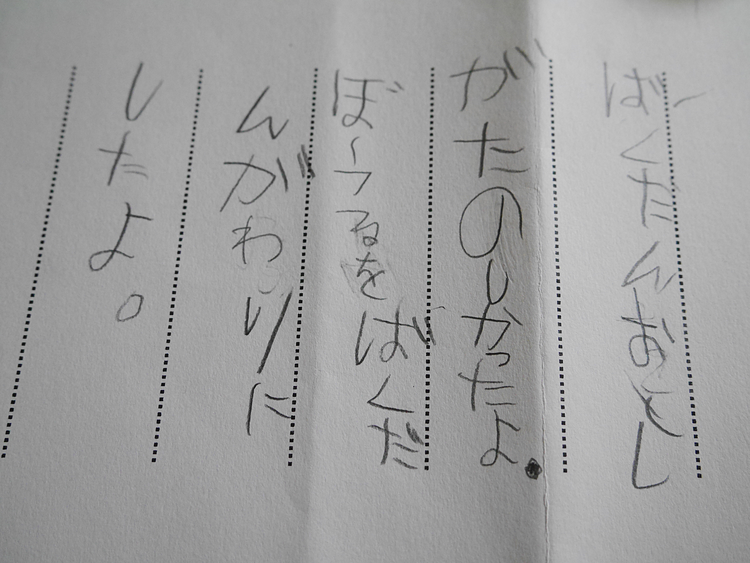 ばくだんおとし
がたのしかったよ。
ぼうるをばくだ
んがわりに
したよ。